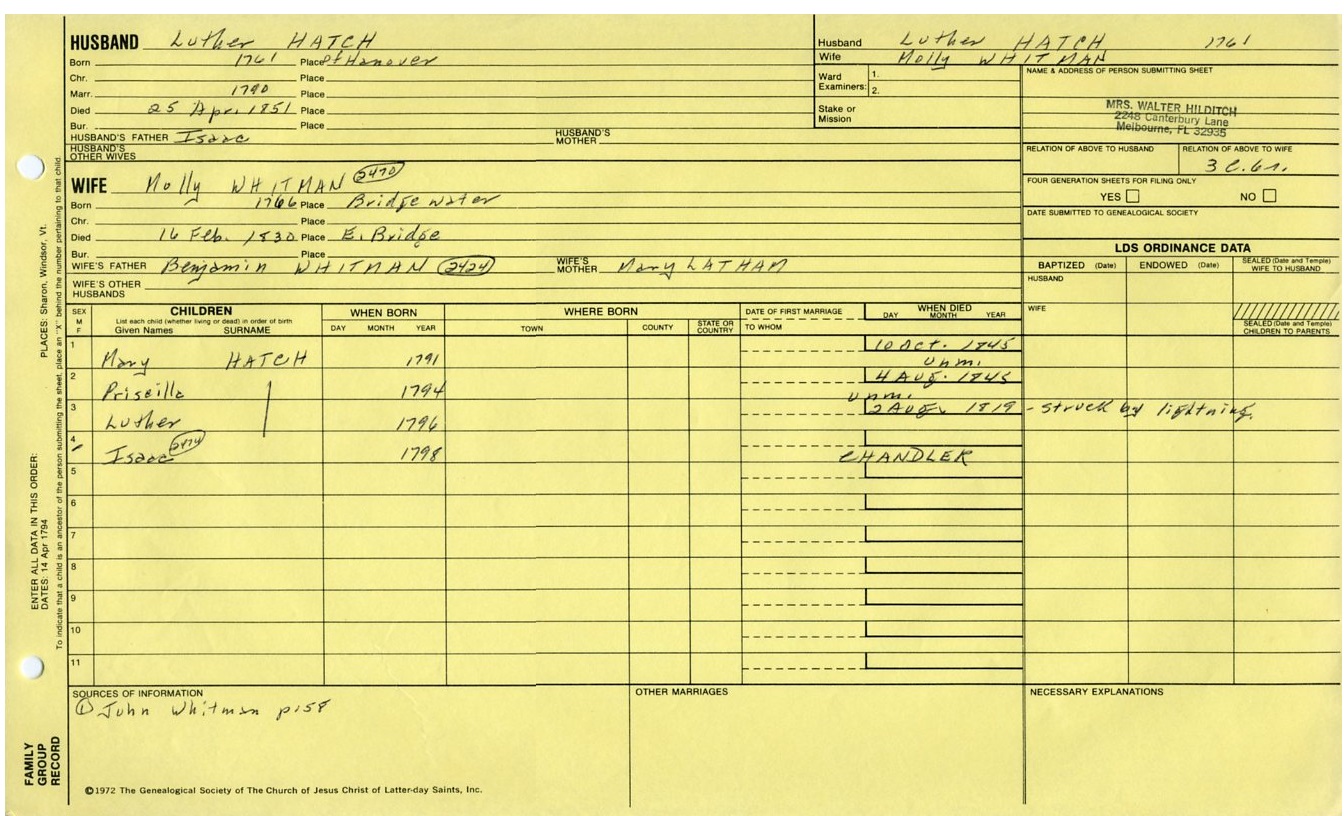 HUSBAND Luther HATCH
Born 1761 Place of Hanover
Chr. Place
Marr. 1790 Place
Died 25 Apr. 1851 Place
Bur. Place
HUSBAND'S FATHER Isaac HUSBAND'S MOTHER
HUSBAND'S OTHER WIVES
Husband Luther HATCH 1761
Wife Molly WHITMAN
Ward Examiners: 1. 2.
Stake or Mission
NAME & ADDRESS OF PERSON SUBMITTING SHEET
MRS. WALTER HILDITCH
2248 Canterbury Lane
Melbourne, FL 32935
RELATION OF ABOVE TO HUSBAND RELATION OF ABOVE TO WIFE
3 C. 6r.
FOUR GENERATION SHEETS FOR FILING ONLY
YES NO
DATE SUBMITTED TO GENEALOGICAL SOCIETY
WIFE Molly WHITMAN 2470
Born 1766 Place Bridgewater
Chr. Place
Died 16 Feb. 1830 Place E. Bridge
Bur. Place
WIFE'S FATHER Benjamin WHITMAN 2424 WIFE'S MOTHER Mary LATHAM
WIFE'S OTHER HUSBANDS
LDS ORDINANCE DATA
BAPTIZED (Date) ENDOWED (Date) SEALED (Date and Temple) WIFE TO HUSBAND
HUSBAND
WIFE
SEALED (Date and Temple) CHILDREN TO PARENTS
SEX M F CHILDREN WHEN BORN WHERE BORN DATE OF FIRST MARRIAGE WHEN DIED
List each child (whether living or dead) in order of birth
Given Names SURNAME DAY MONTH YEAR TOWN COUNTY STATE OR COUNTRY TO WHOM DAY MONTH YEAR
1 10 Oct. 1845
Mary HATCH 1791 unm.
2 4 Aug. 1845
Priscilla 1794 unm.
3 2 Aug. 1819 - struck by lightning.
Luther 1796
4
Isaac 2474 1798 CHANDLER
5
6
7
8
9
10
11
SOURCES OF INFORMATION
① John Whitman p.58
OTHER MARRIAGES
NECESSARY EXPLANATIONS
©1972 The Genealogical Society of The Church of Jesus Christ of Latter-day Saints, Inc.
FAMILY GROUP RECORD
ENTER ALL DATA IN THIS ORDER:
DATES: 14 Apr 1794
PLACES: Sharon, Windsor, Vt.
To indicate that a child is an ancestor of the person submitting the sheet, place an "X" behind the number pertaining to that child.